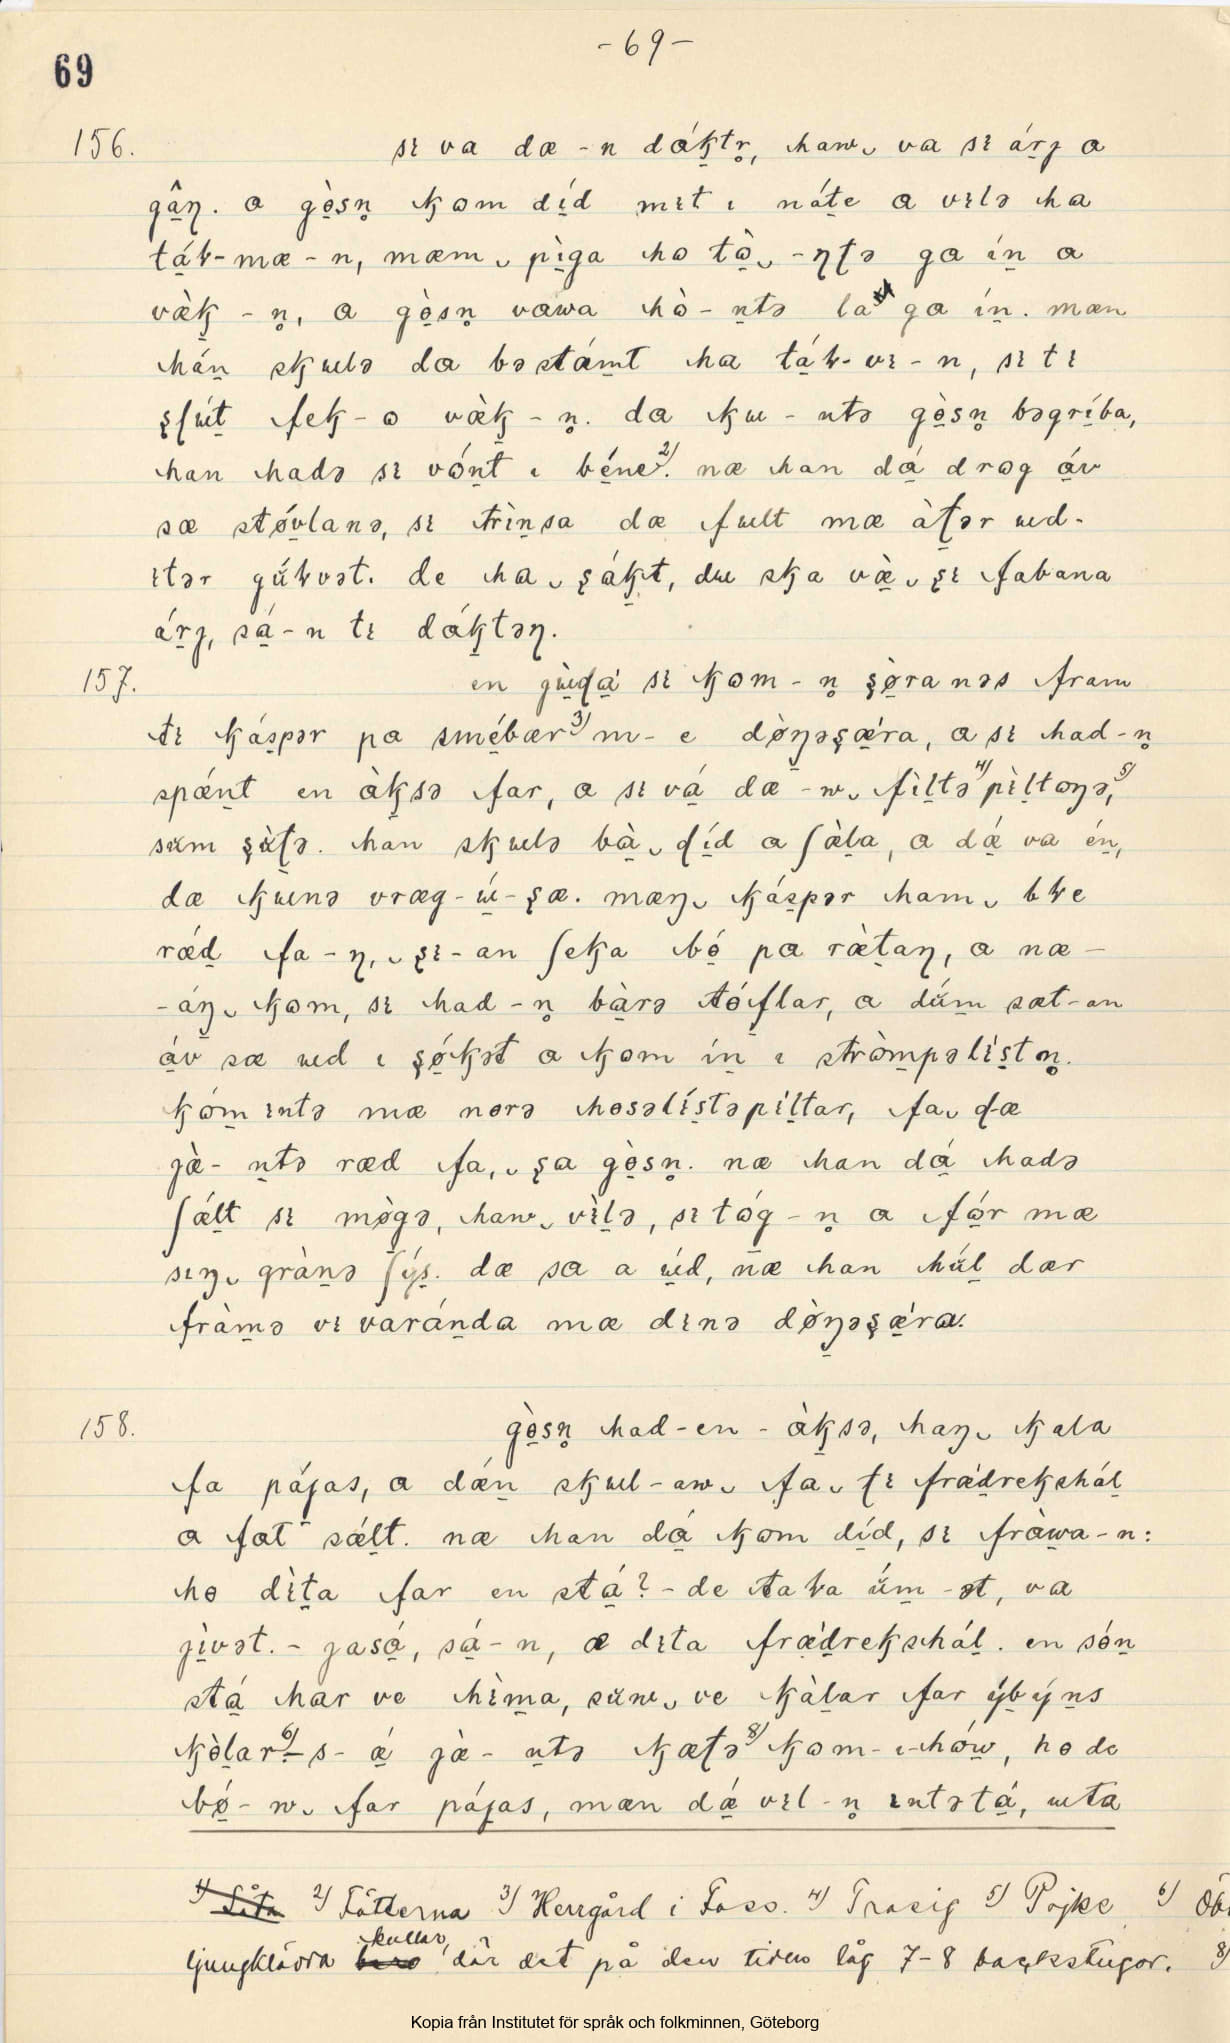 - 69 -
69
156. sɪ va dæ - n dáꞖtr̥, haw‿ va sɪ árȷ a
gâŋ. a gòsn̥ kom díd mɪt ɪ náte a vɪlə ha
táƚ-mæ-n, mæm‿ pìga ho tò‿-ŋtə ga ín a
vækk - n̥, a gòsn̥ vawa hò - ntə la ga ín. mæn
hán skulə da bəstámt ha táƚ-vɪ-n, sɪ tɪ
ʂʃút fek-o vækk - n̥. da ku - ntə gòsn̥ bəgríba,
han hadə sɪ vónt ɪ béne²⁾. næ han dá drog áv
sæ støvlanə, sɪ trìnsa dæ fult mæ àtər ud-
ɪtər gúƚvət. de ha‿ ʂákt, du ska væ̀‿ ʂɪ fabana
árȷ, sá-n tɪ dáktəŋ.
157. en jùdá sɪ kom - n̥ ʂøranəs fram
tɪ káspər pa smébær³⁾ m- e døŋəʂæra, a sɪ had-n̥
spænt en àksə far, a sɪ vá dæ -w‿ fìltə⁴⁾ pìltoŋə,⁵⁾
sum ʂùtə. han skulə bà‿ díd a ʃæla, a dæ va én,
dæ kunə vræg-ú-ʂæ. mæŋ‿ káspər ham‿ bƚe
ræd fa-ŋ,‿ ʂɪ-an ʃeka bó pa rætaŋ, a næ -
-áŋ‿ kom, sɪ had-n̥ bàrə tóflar, a dúm sæt-an
áv sæ ud ɪ ʂøkət a kom ín ɪ stròmpəlístn̥.
kóm ɪntə mæ norə hosəlístəpíltar, fa‿ dæ
jæ- ntə ræd fa,‿ ʂa gòsn̥. næ han dá hadə
ʃælt sɪ møgə, haw‿ vìlə, sɪ tóg - n̥ a fór mæ
sɪŋ‿ grànə ʃýs. dæ sa a úd, næ han húl dær
fràmə vɪ varánda mæ dɪnə døŋəʂæra.
158. gòsn̥ had-en - àksə, haŋ‿ kala
fa pájas, a dæn skul-aw‿ fa‿ tɪ frædrekshál
a fat sælt. næ han dá kom díd, sɪ fràwa-n:
ho dìta far en stá? - de taƚa úm -ət, va
jìvət. - jasá, sá-n, æ dɪta frædrekshál. en són
stá har ve hìma, sum‿ ve kàlar far ýbýns
kòlar⁶⁾-s- æ jæ- ntə kætə⁸⁾ kom-ɪ-hów, ho de
bø - w‿ far pájas, mæn dæ vɪl-n̥ ɪntətá, uta
²⁾ Fötterna ³⁾ Herrgård i Foss. ⁴⁾ Trasig ⁵⁾ Pojke ⁶⁾
ljungklädda kullar, där det på den tiden låg 7-8 backstugor. ⁸⁾
Kopia från Institutet för språk och folkminnen, Göteborg